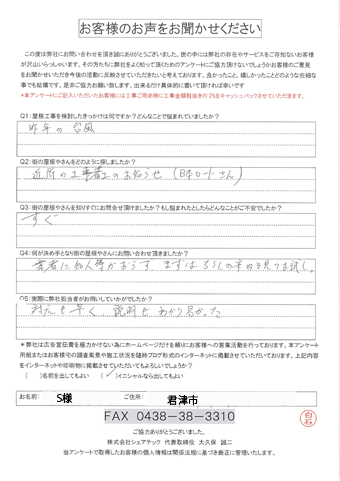 お客様のお声をお聞かせください
この度は弊社にお問い合わせを頂き誠にありがとうございました。世の中には弊社の存在やサービスをご存知ないお客様
が沢山いらっしゃいます。その方たちに弊社をよく知って頂くためのアンケートにご協力頂けないでしょうかお客様のご意見
をお聞かせいただき今後の活動に反映させていただきたいと考えております。良かったこと、嬉しかったことどのような些細な
事でも結構です。是非ご協力お願い致します。出来るだけ具体的に書いて頂ければ幸いです
*本アンケートにご記入いただいたお客様には工事ご用命時に工事金額税抜きの2%をキャッシュバックさせていただきます。
Q1:屋根工事を検討したきっかけは何ですか?どんなことで悩まれていましたか?
昨年の 台風
Q2:街の屋根やさんをどのように探しましたか?
近所の工事着工のお知らせ
Q3:街の屋根やさんを知りすぐにお問合せ頂けましたか?もし悩まれたとしたらどんなことがご不安でしたか?
すぐ
Q4:何が決め手となり街の屋根やさんにお問い合わせ頂きましたか?
Q5:実際に弊社担当者がお伺いしていかがでしたか?
対応も早く、説明もわかり易かった
*弊社は広告宣伝費を極力かけない為にホームページだけを頼りにお客様への営業活動を行っております。本アンケート
用紙またはお客様宅の調査風景や施工状況を随時ブログ形式のインターネットに掲載させていただいております。上記内容
をインターネットや印刷物に掲載させていただいてもよろしいでしょうか?
( )名前を出してもよい (✓)イニシャルなら出してもよい
お名前: S様 ご住所: 君津市
FAX 0438-38-3310
白石
ご協力ありがとうございました。
株式会社シェアテック 代表取締役 大久保 誠二
当アンケートで取得したお客様の個人情報は関係法規に基づき厳正に管理いたします。